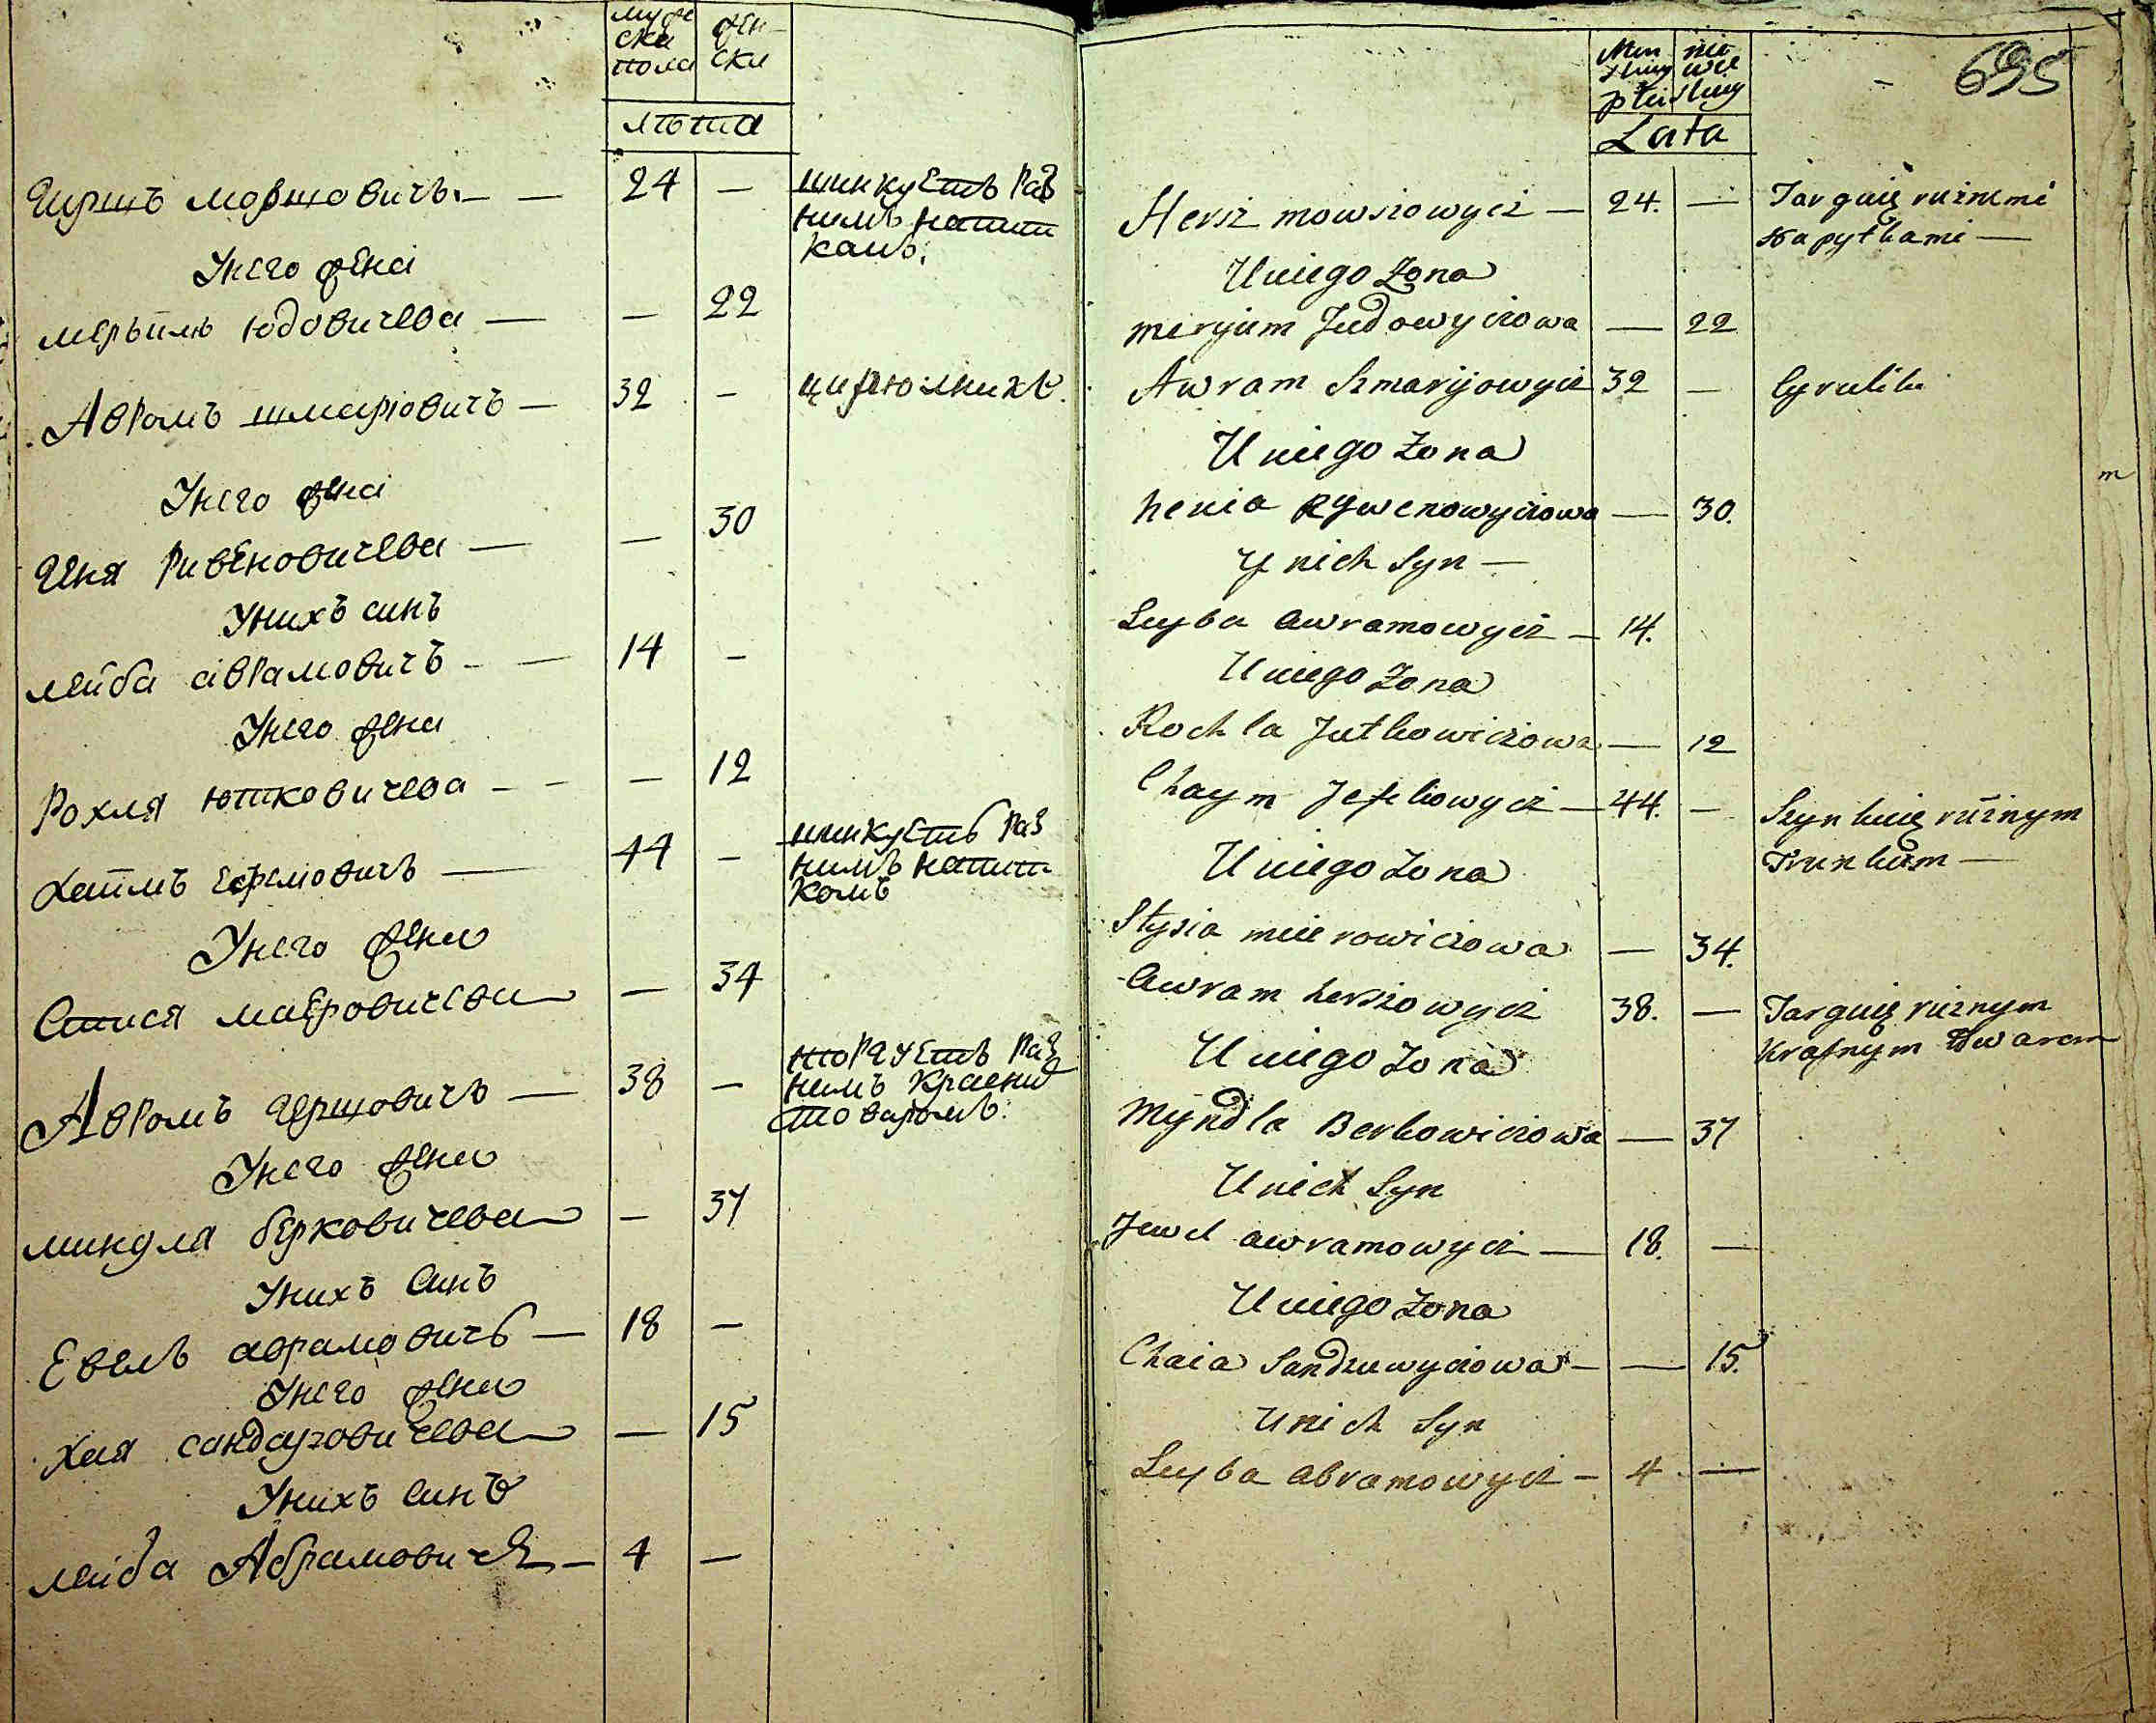 муже
ска
пола
жен
ски
лѣта
Гиршъ мовшовичъ — — 24 — шинкуетъ раз
нимъ напит
камъ.
Унего жена
мерьимъ юдовичева — — 22
Аврамъ шмаріовичъ — 32 — цирюлникъ.
Унего жена
Геня Ривеновичева — — 30
Унихъ синъ
лейба аврамовичъ — — 14 —
Унего жена
Рохля ютковичева — — — 12
Хаимъ ефемовичъ — 44 — шинкуетъ раз
нимъ напит
комъ
Унего жена
Стися маеровичева — 34
Аврамъ Гершовичъ — 38 — торгуетъ раз
нимъ красним
товаромъ.
Унего жена
миндля берковичева — 37
Унихъ синъ
Евель аврамовичъ — 18 —
Унего жена
хая сандаровичева — 15
Унихъ синъ
лейба Абрамовичъ — 4 —
695
Męz
kiey
płci
nie
wie
skiey
Lata
Hersz mowszowycz — 24. — Targuię ruznemi
Napytkami —
U niego Zona
meryum Judowyczowa — 22
Awram Szmaryjowycz 32 — Cyrulik
U niego Zona
henia Rywenowyczowa — 30.
Y nich Syn —
Leyba awramowycz — 14.
U niego Zona
Rochla Jutkowiczowa — 12
Chaym Jefkowycz — 44. — Szynkuię róznym
Trunkam —
U niego Zona
Stysia meierowiczowa — 34.
Awram herszowycz 38. — Targuię ruznym
Krasnym Towarom
U niego Zona
Myndla Berkowiczowa — 37
U nich Syn
Jewel awramowycz — 18. —
U niego Zona
Chaia Sandruwyczowa — — 15.
U nich Syn
Leyba abramowycz — 4 —